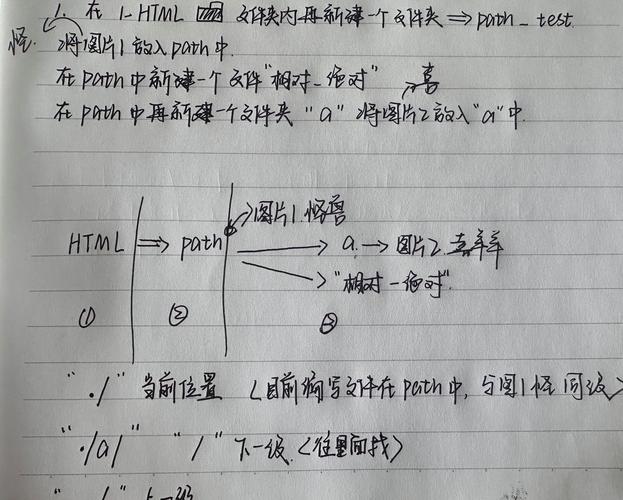 1. 在 1-HTML 文件夹内再新建一个文件夹 ⇒ path_test
怪. 将图片1放入path中.
在path中新建一个文件"相对_绝对" 喜
在path中再新建一个文件夹 "a" 将图片2放入"a"中.
图片1.怪兽
HTML ⇒ path → a. → 图片2.喜羊羊
> "相对-绝对"
① ② ③
"./" 当前位置 <目前编写文件在path中, 与图1怪同级>
"./a/" "/" 下一级.<往里面找>